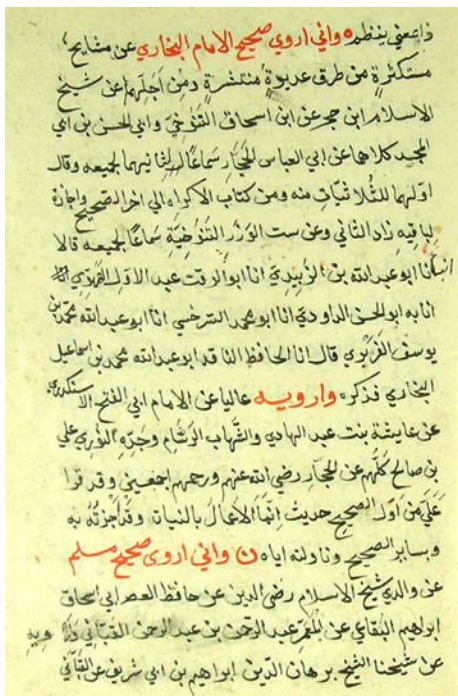 ذا عني ينظم ه واني اروي صحيح الامام البخاري عن مشايخ
مستكثرة من طرق عديدة منتشرة ومن اجلهم عن شيخ
الاسلام ابن حجر عن ابن اسحاق التنوخي وابي الحسن بن ابي
المجد كلاهما عن ابي العباس الحجار سماعا لثانيهما لجميعه وقال
اولهما للثلاثيات منه ومن كتاب الاكراه الي اخر الصحيح واجازة
لباقيه زاد الثاني وعن ست الوزر التنوخية سماعا لجميعه قالا
انبأنا ابو عبد الله بن الزبيدي انا ابو الوقت عبد الاول الهروي
انا به ابو الحسن الداودي انا ابو محمد السرخسي انا ابو عبد الله محمد بن
يوسف الفربري قال انا الحافظ الناقد ابو عبد الله محمد بن اسماعيل
البخاري فذكره وارويه عاليا عن الامام ابي الفتح الاسكندري
عن عايشة بنت عبد الهادي والشهاب الرسام وجده النوري علي
بن صالح كلهم عن الحجار رضي الله عنهم ورحمهم اجمعين وقد قرا
علي من اول الصحيح حديث انما الاعمال بالنيات وقد اجزته به
وبساير الصحيح وناولته اياه ن واني اروي صحيح مسلم
عن والدي شيخ الاسلام رضي الدين عن حافظ العصر ابي اسحاق
ابراهيم البقاعي عن المعمر عبد الرحمن بن عبد الرحمن القبابي وبه
عن شيخنا الشيخ برهان الدين ابراهيم بن ابي شريف عن القبابي